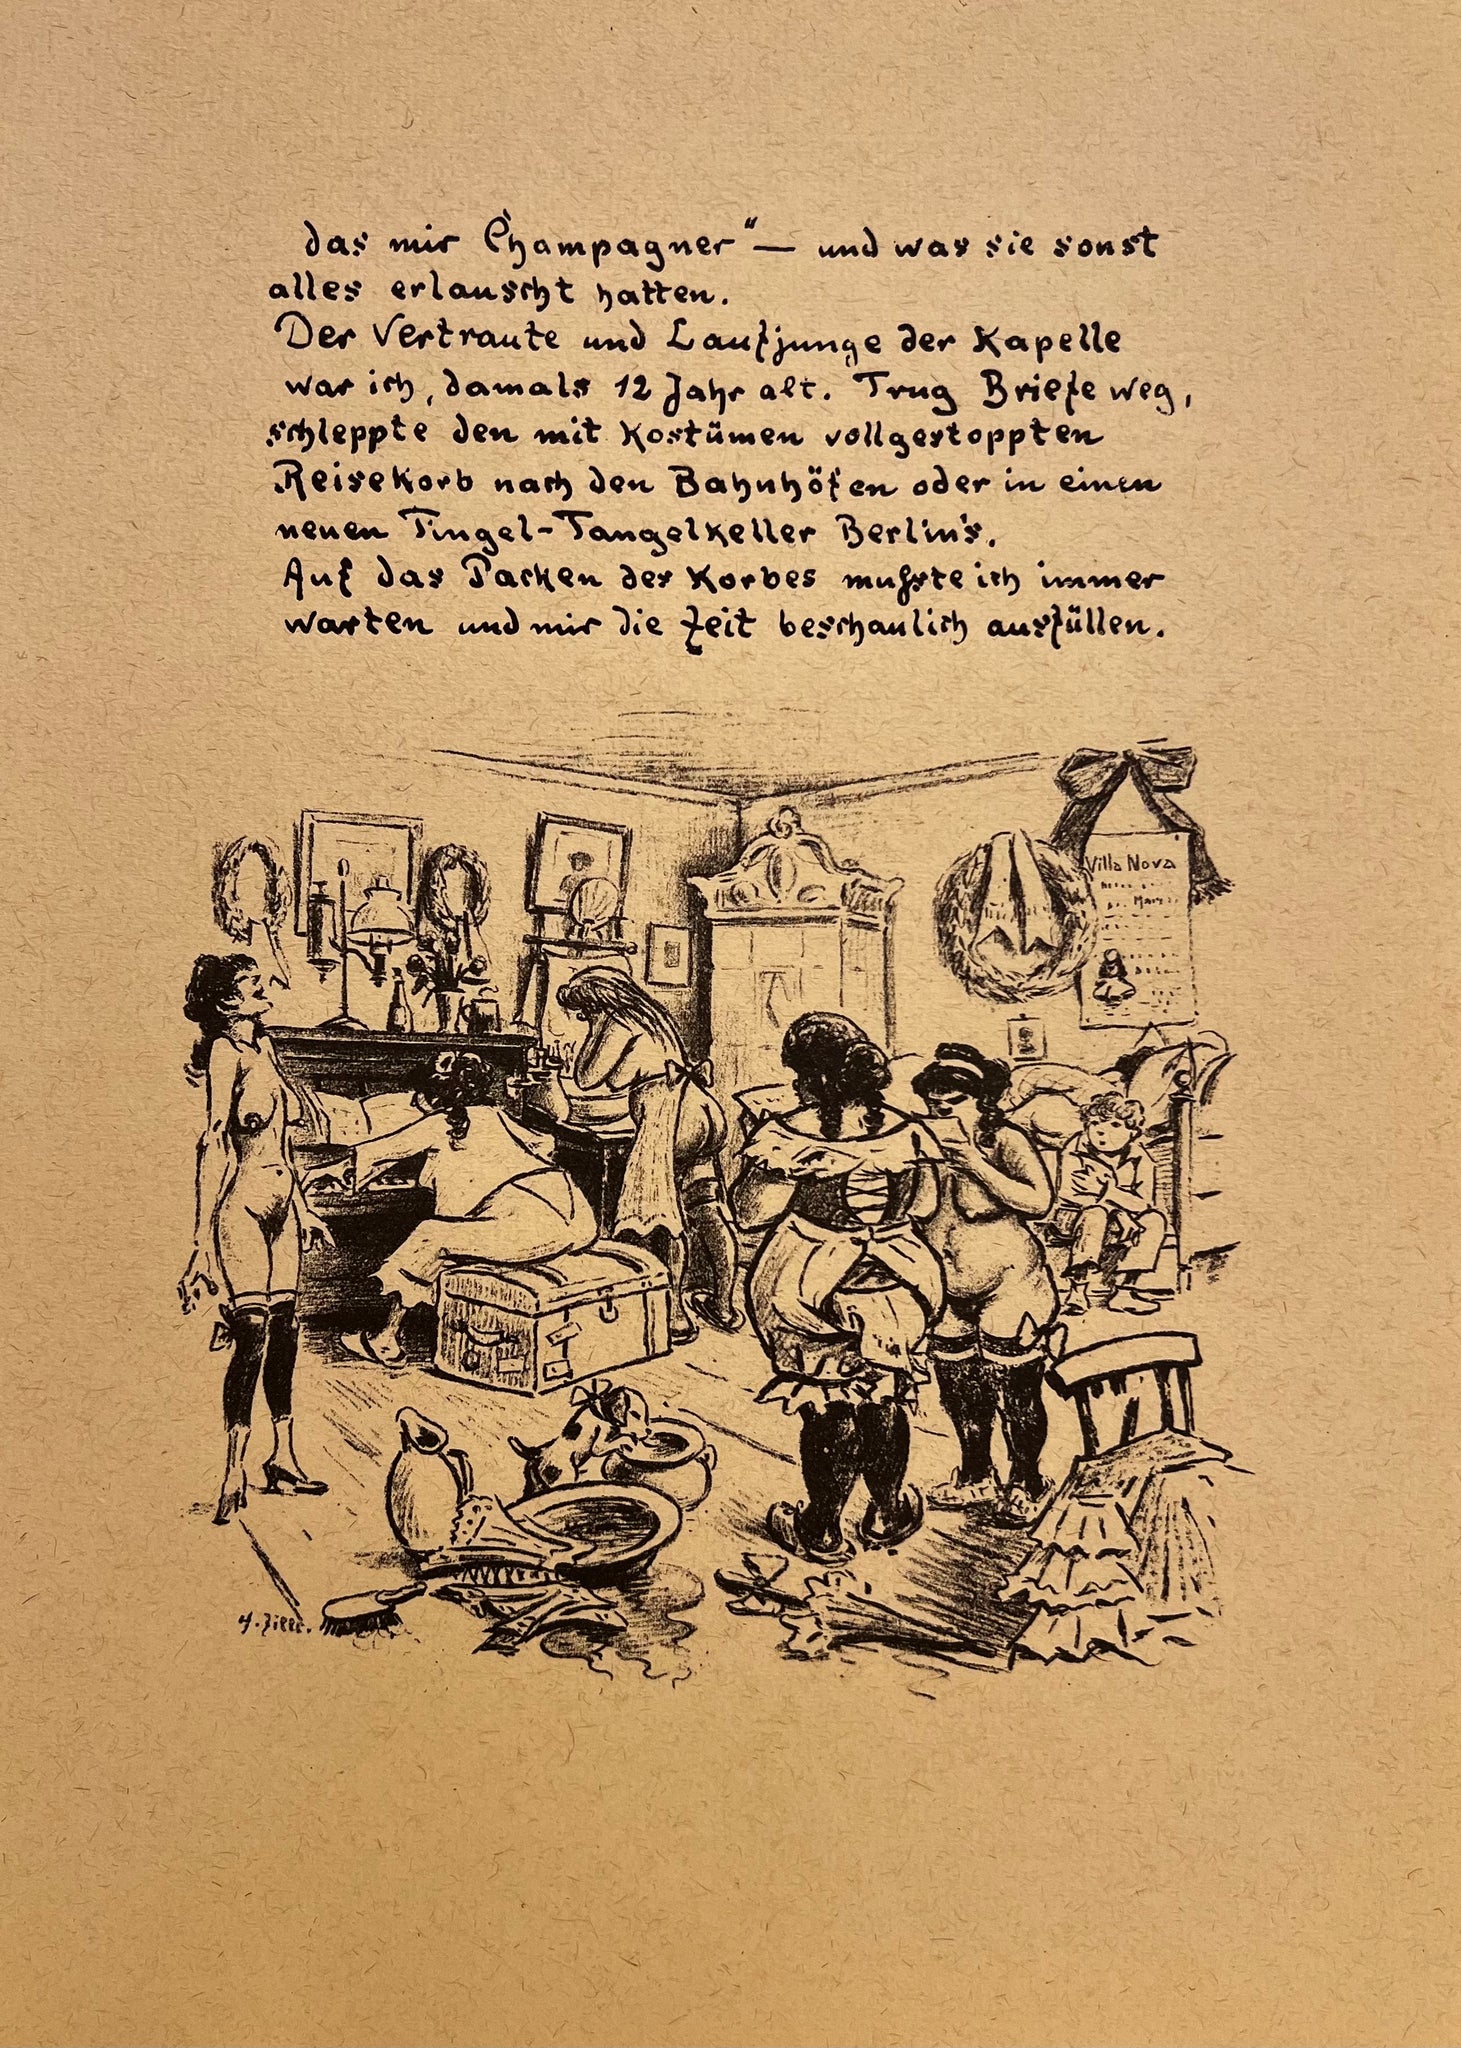 das mir Champagner“ — und was sie sonst
alles erlauscht hatten.
Der Vertraute und Laufjunge der Kapelle
war ich, damals 12 Jahr alt. Trug Briefe weg,
schleppte den mit Kostümen vollgestoppten
Reisekorb nach den Bahnhöfen oder in einen
neuen Tingel-Tangelkeller Berlin's.
Auf das Packen des Korbes mußte ich immer
warten und mir die Zeit beschaulich ausfüllen.
Villa Nova
H. Zille.